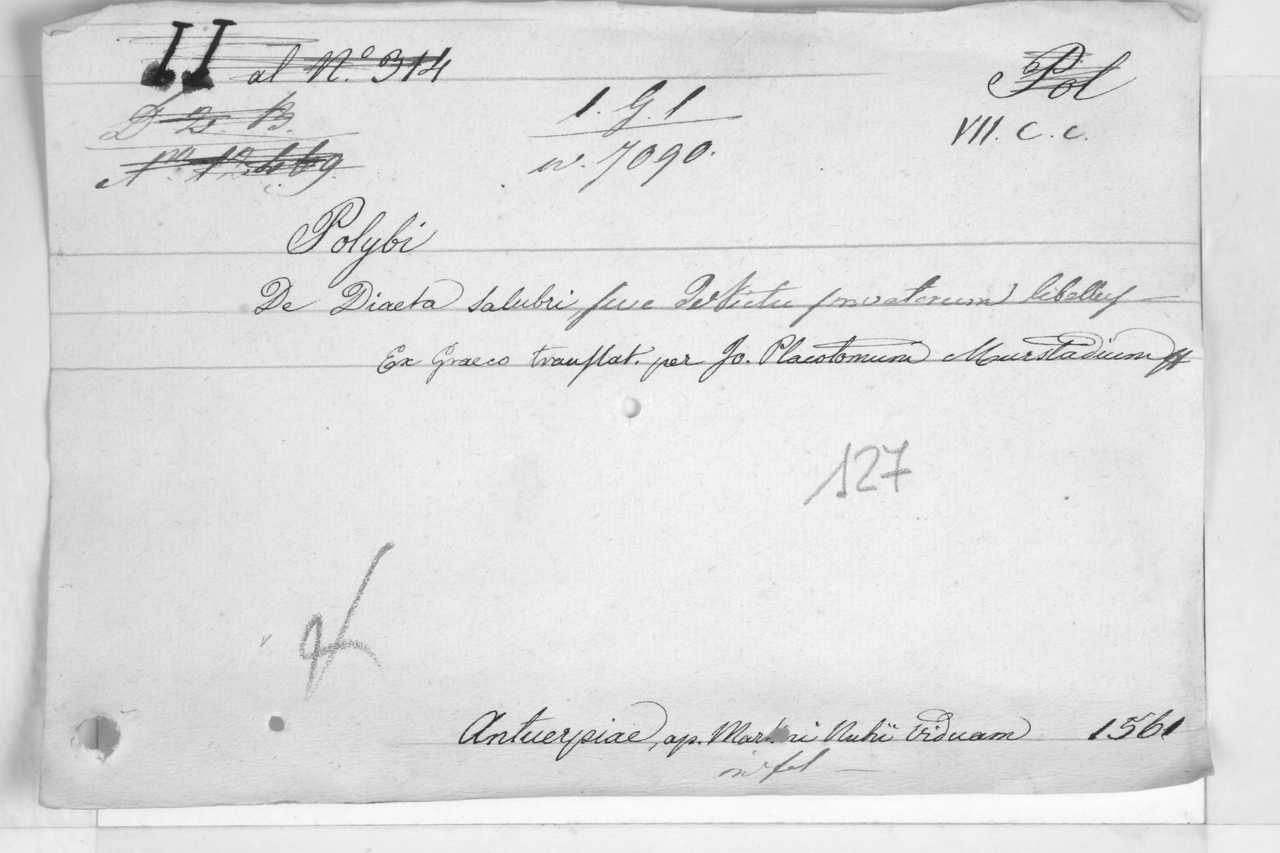 II al N.o 314
Pol
D 2. B.
1. G. 1
VII. c. c.
No 469
n. 7090.
Polybi
De Diaeta salubri sive De Victu privatorum libelly
Ex Graeco tranſlat. per Jo. Placotomum Murstadium
127
Antverpiae, ap. Martini Nutii Viduam 1561
in fol